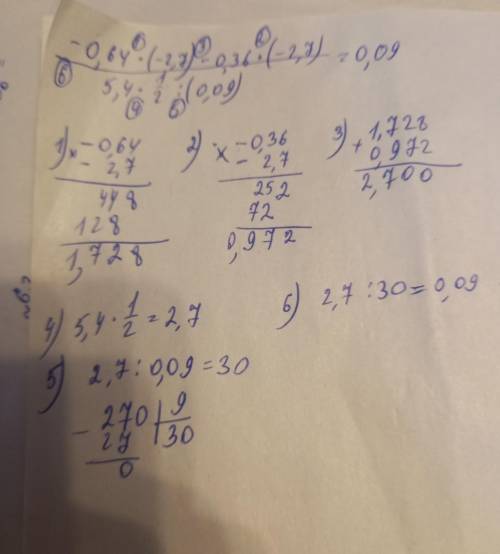 −0,64 · (−2,7) − 0,36 · (−2,7) = 0,09
5,4 · 1/2 : (0,09)
1) × −0,64
− 2,7
448
128
1,728
2) × −0,36
− 2,7
252
72
0,972
3) + 1,728
0,972
2,700
4) 5,4 · 1/2 = 2,7
6) 2,7 : 30 = 0,09
5) 2,7 : 0,09 = 30
− 270 | 9
27 | 30
0